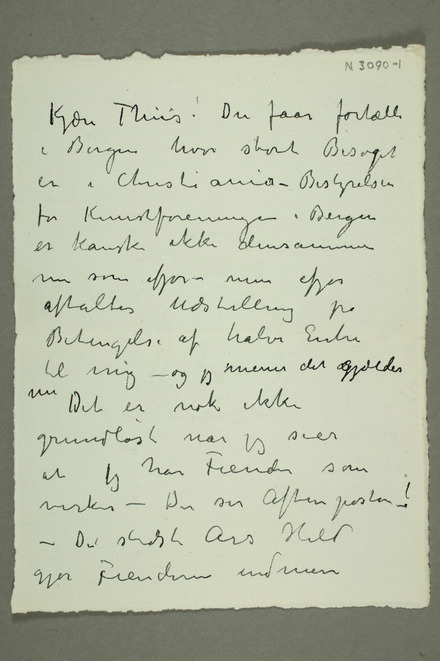 N 3090-1
Kjære Thiis! Du faar fortælle
i Bergen hvor stort Besøget
er i Christiania – Bestyrelsen
for Kunstforeningen i Bergen
er kanske ikke densamme
nu som ifjor – men ifjor
aftaltes Udstilling på
Betingelse af halve Entre
til mig – og jeg mener det gjælder
nu
Det er nok ikke
grundløst naar jeg sier
at jeg har Fiender som
virker – Du ser Aftenposten!
– Det sidste Års Held
gjør Fienderne endmere